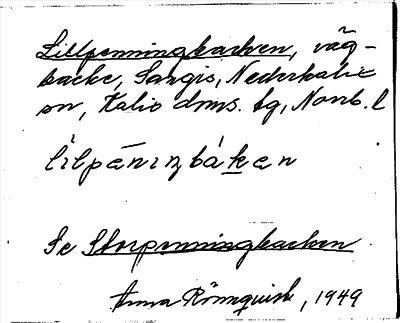 Lillpenningbacken, väg-
backe, Sangis, Nederkalix
sn, Kalix dms. tg, Norrb. l
lilpäninbakan
Se Storpenningbacken
Anna Rönnquist, 1949